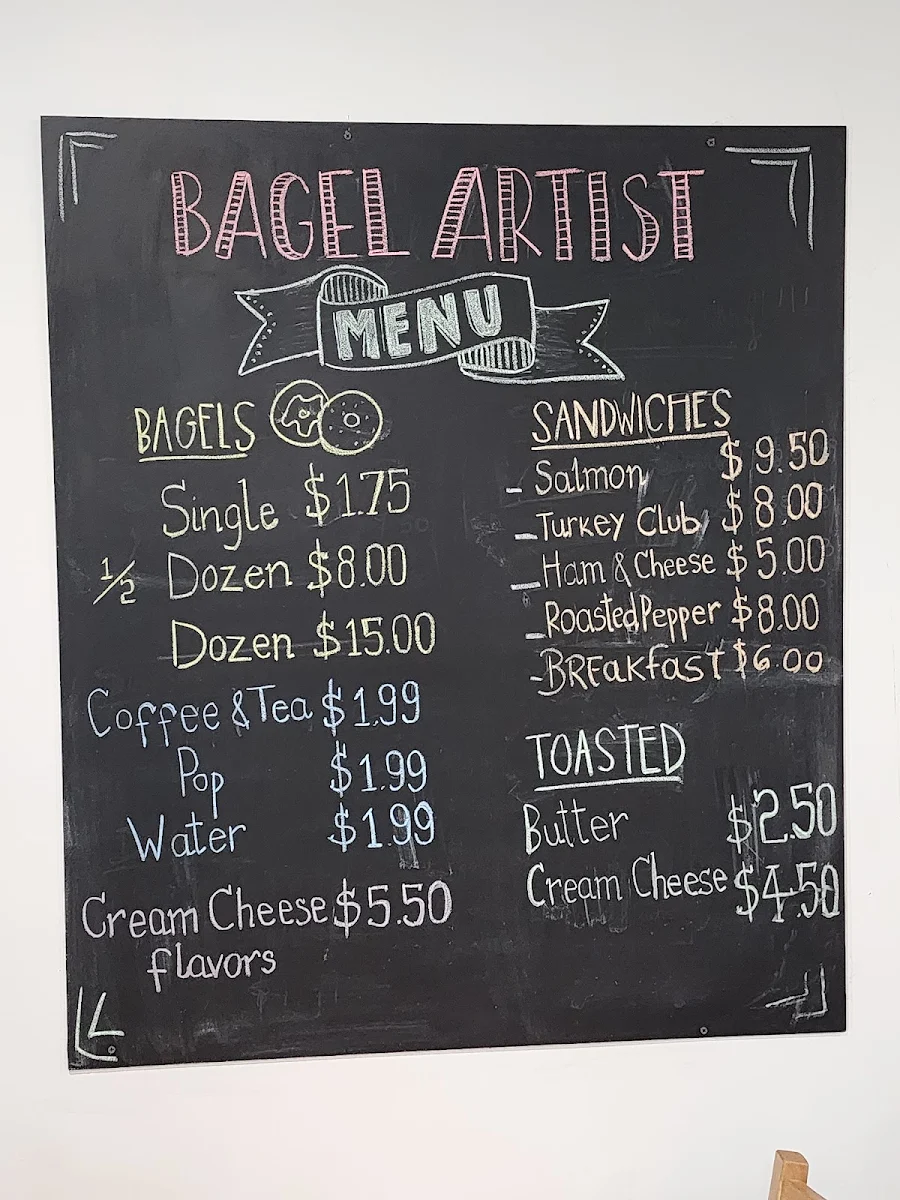 BAGEL ARTIST
MENU
BAGELS
Single $1.75
1/2 Dozen $8.00
Dozen $15.00
Coffee & Tea $1.99
Pop $1.99
Water $1.99
Cream Cheese $5.50
flavors
SANDWICHES
- Salmon $9.50
- Turkey Club $8.00
- Ham & Cheese $5.00
- Roasted Pepper $8.00
- BREakfast $6.00
TOASTED
Butter $2.50
Cream Cheese $4.50